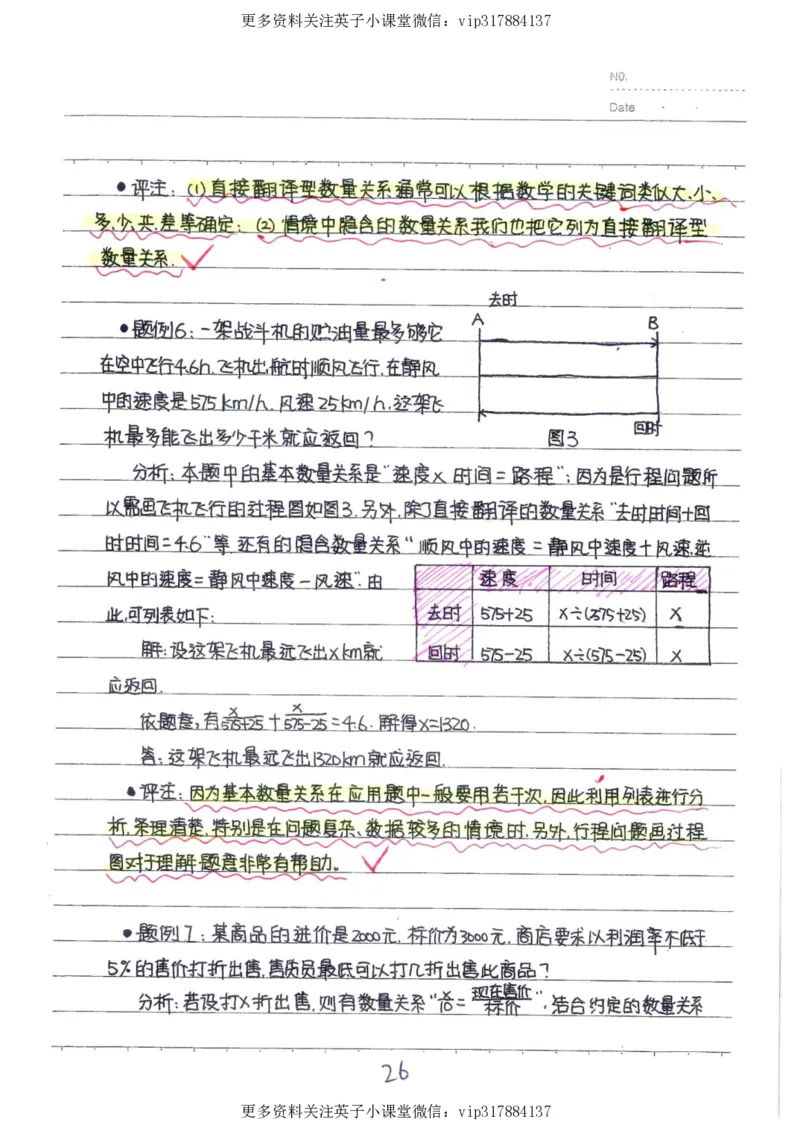 更多资料关注英子小课堂微信：vip317884137
NO.
Date
•评注：(1)直接翻译型数量关系通常可以根据数学的关键词类似大、小、
多、少、共、差等确定；(2)情境中隐含的数量关系我们也把它列为直接翻译型
数量关系.
去时
A B
•题例6：一架战斗机的贮油量最多够它
在空中飞行4.6h，飞机出航时顺风飞行，在静风
中的速度是575km/h，风速25km/h，这架飞
机最多能飞出多少千米就应返回？
图3
回时
分析：本题中的基本数量关系是“速度×时间=路程”；因为是行程问题所
以需画飞机飞行的过程图如图3.另外，除了直接翻译的数量关系“去时时间+回
时时间=4.6”等，还有的隐含数量关系“顺风中的速度=静风中速度+风速，逆
风中的速度=静风中速度-风速”.由
此，可列表如下：
速度 时间 路程
去时 575+25 x÷(575+25) x
回时 575-25 x÷(575-25) x
解：设这架飞机最远飞出xkm就
应返回.
依题意，有x/(575+25)+x/(575-25)=4.6.解得x=1320.
答：这架飞机最远飞出1320km就应返回.
•评注：因为基本数量关系在应用题中一般要用若干次，因此利用列表进行分
析，条理清楚，特别是在问题复杂、数据较多的情境时，另外，行程问题画过程
图对于理解题意非常有帮助。
•题例7：某商品的进价是2000元，标价为3000元，商店要求以利润率不低于
5%的售价打折出售，售货员最低可以打几折出售此商品？
分析：若设打x折出售，则有数量关系“x/10=现在售价/标价”，结合约定的数量关系
26
更多资料关注英子小课堂微信：vip317884137